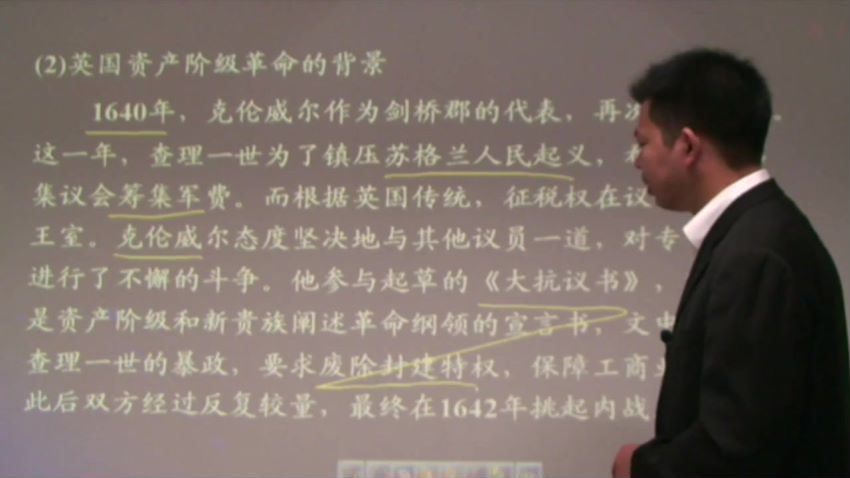 (2)英国资产阶级革命的背景
1640年，克伦威尔作为剑桥郡的代表，再
这一年，查理一世为了镇压苏格兰人民起义，
集议会筹集军费。而根据英国传统，征税权在议
王室。克伦威尔态度坚决地与其他议员一道，对专
进行了不懈的斗争。他参与起草的《大抗议书》，
是资产阶级和新贵族阐述革命纲领的宣言书，文中
查理一世的暴政，要求废除封建特权，保障工商
此后双方经过反复较量，最终在1642年挑起内战